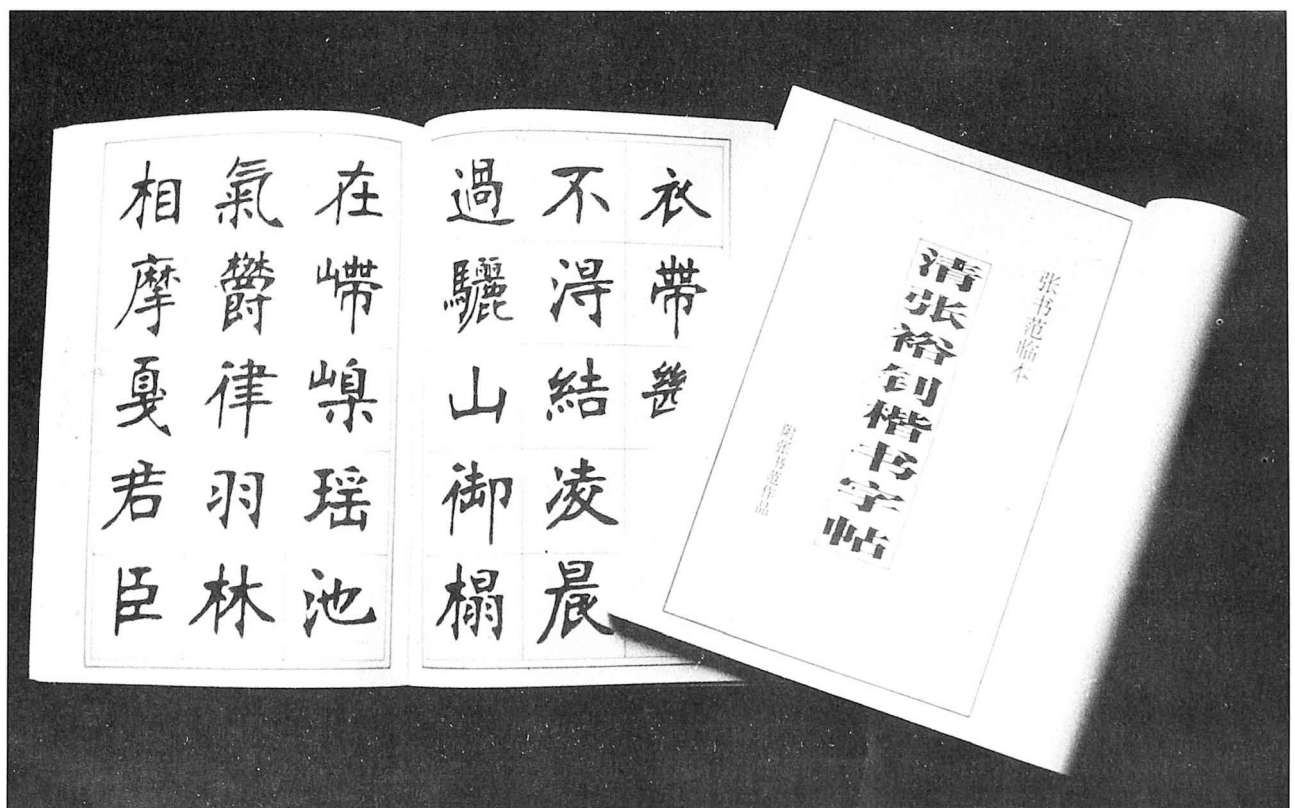 衣帶
不淂結凌晨
過驪山御榻
在嵽嵲瑶池
氣欝律羽林
相摩戛君臣
张书范临本
清张裕钊楷书字帖
附张书范作品